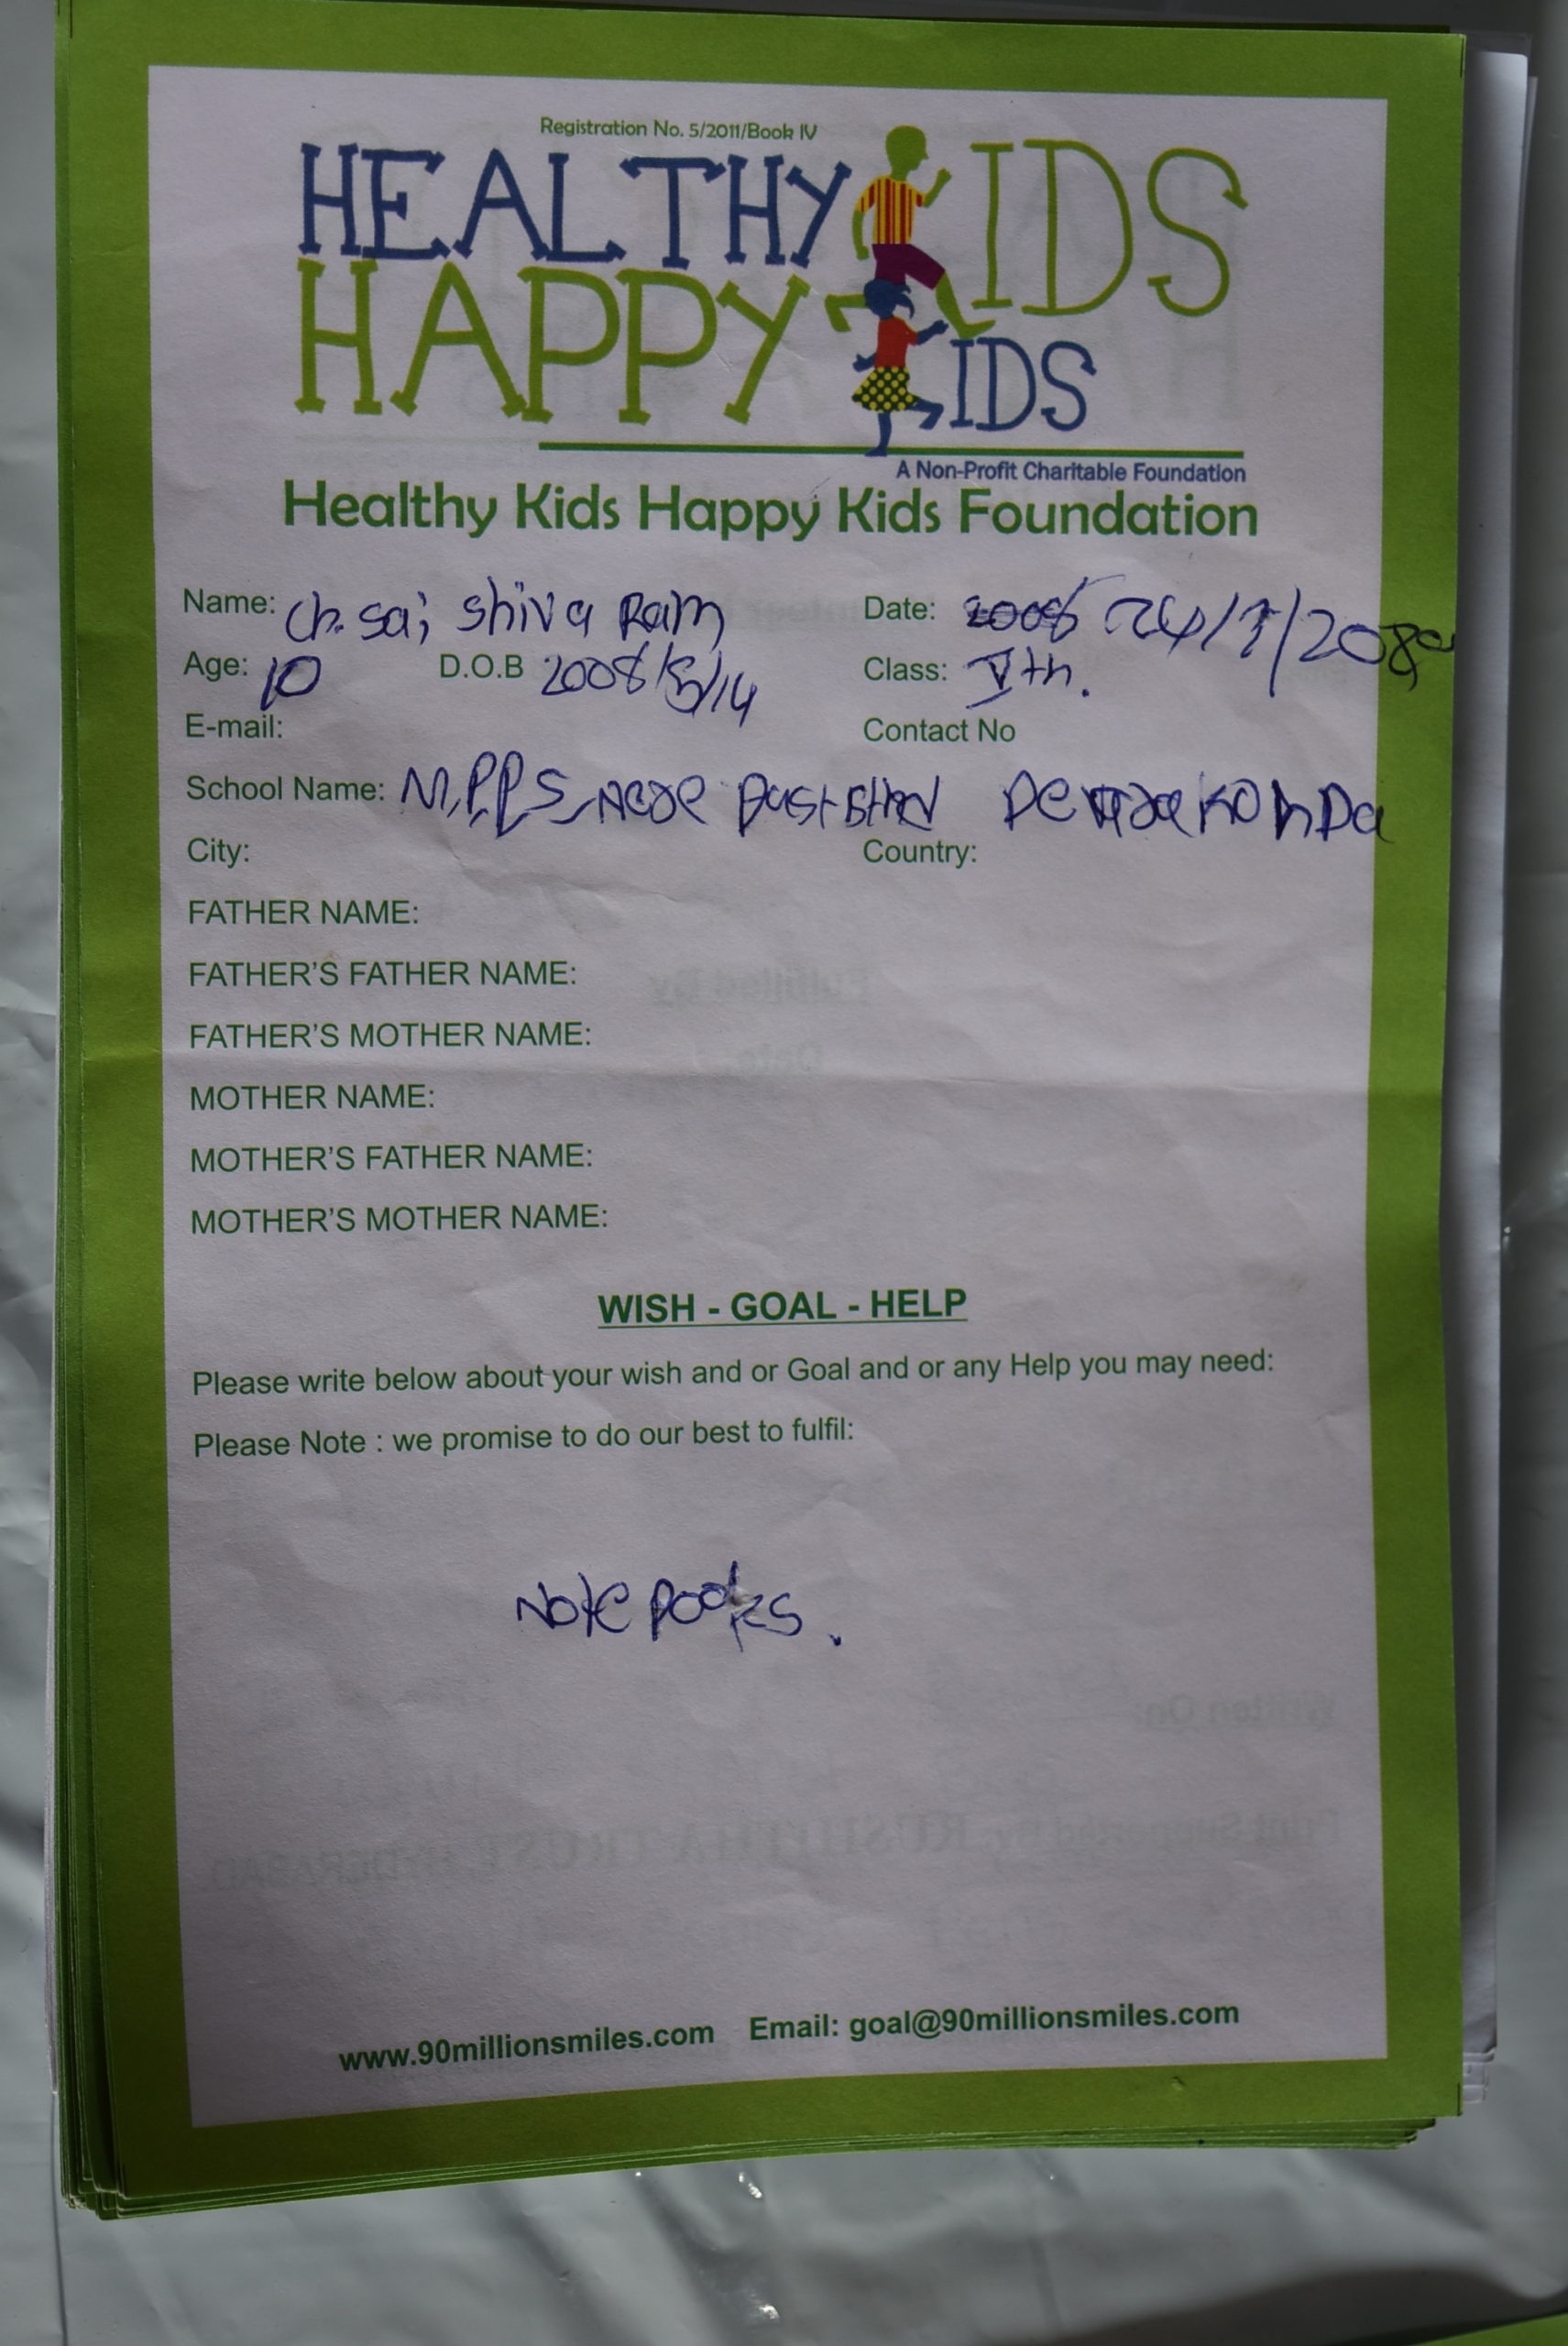 Registration No. 5/2011/Book IV
HEALTHY KIDS
HAPPY KIDS
A Non-Profit Charitable Foundation
Healthy Kids Happy Kids Foundation
Name: Ch. Sai Shiva Ram Date: 24/7/
Age: 10 D.O.B 2008/5/14 Class: Vth.
E-mail: Contact No
School Name: M.P.P.S
City: Country:
FATHER NAME:
FATHER'S FATHER NAME:
FATHER'S MOTHER NAME:
MOTHER NAME:
MOTHER'S FATHER NAME:
MOTHER'S MOTHER NAME:
WISH - GOAL - HELP
Please write below about your wish and or Goal and or any Help you may need:
Please Note : we promise to do our best to fulfil:
Note pooks.
www.90millionsmiles.com Email: goal@90millionsmiles.com